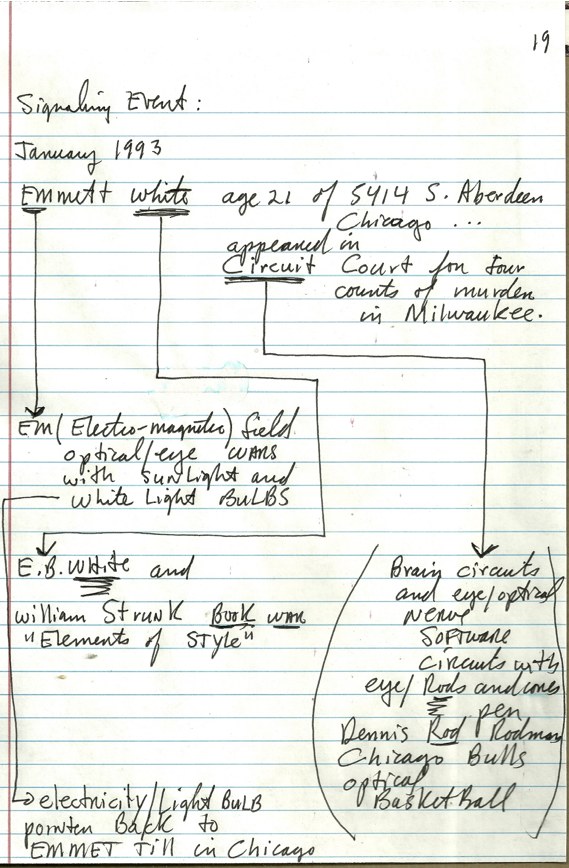 19
Signaling Event:
January 1993
Emmett White age 21 of 5414 S. Aberdeen
Chicago ...
appeared in
Circuit Court for four
counts of murder
in Milwaukee.
EM (Electro-magnetic) field
optical/eye WARS
with sunlight and
white Light BULBS
E.B. White and
William Strunk Book war
"Elements of Style"
Brain circuits
and eye/optical
nerve
Software
circuits with
eye/Rods and cones
pen
Dennis Rod Rodman
Chicago Bulls
optical
BasketBall
electricity/Light BULB
pointer Back to
EMMET Till in Chicago